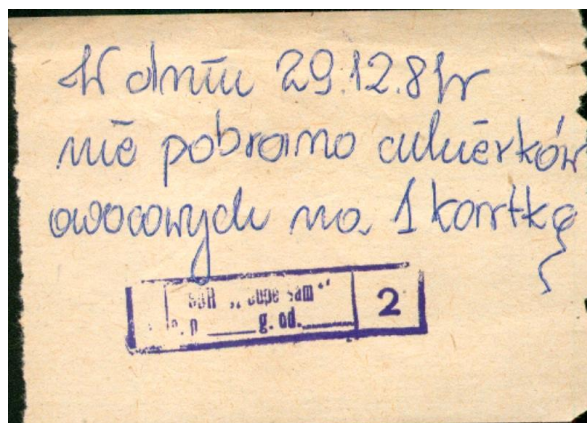 W dniu 29.12.81r
nie pobrano cukierków
owocowych na 1 kartkę
g. od.
2